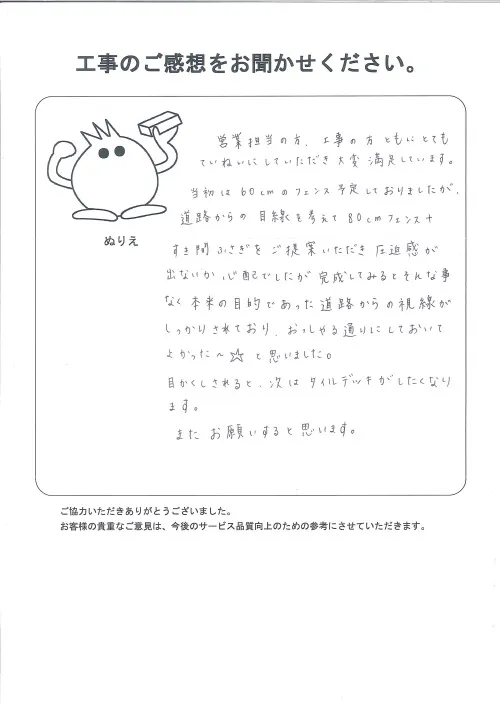 工事のご感想をお聞かせください。
営業担当の方、工事の方 ともにとても
ていねいにしていただき 大変 満足しています。
当初は 60cmのフェンス予定しておりましたが、
道路からの 目線を考えて 80cmフェンス+
ぬりえ
すき間ふさぎをご提案いただき 圧迫感が
出ないか 心配でしたが 完成してみるとそんな事
なく 本来の目的であった 道路からの視線が
しっかりされており、おっしゃる通りにしておいて
よかった～☆ と思いました。
目かくしされると、次は タイルデッキがしたくなり
ます。
また お願いすると思います。
ご協力いただきありがとうございました。
お客様の貴重なご意見は、今後のサービス品質向上のための参考にさせていただきます。